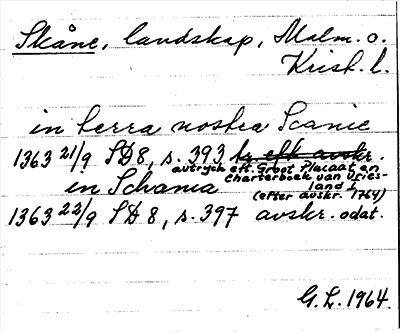 Skåne, landskap, Malm. o.
Krist. l.
in terra nostra Scanie
1363 21/9 SD8, s. 393 by eft avskr.
avtryck eft. Groot Placaat en
Charterboek van Vries-
land I,
in Schania (efter avskr. 1764)
1363 22/9 SD8, s. 397 avskr. odat.
G. L. 1964.